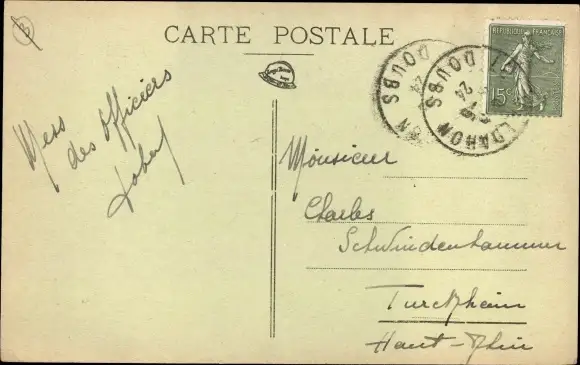 CARTE POSTALE
REPUBLIQUE FRANÇAISE
15c
DOUBS
24
DOUBS
24
Mess
des officiers
Monsieur
Charles
Schwindenhammer
Turckheim
Haut-Rhin